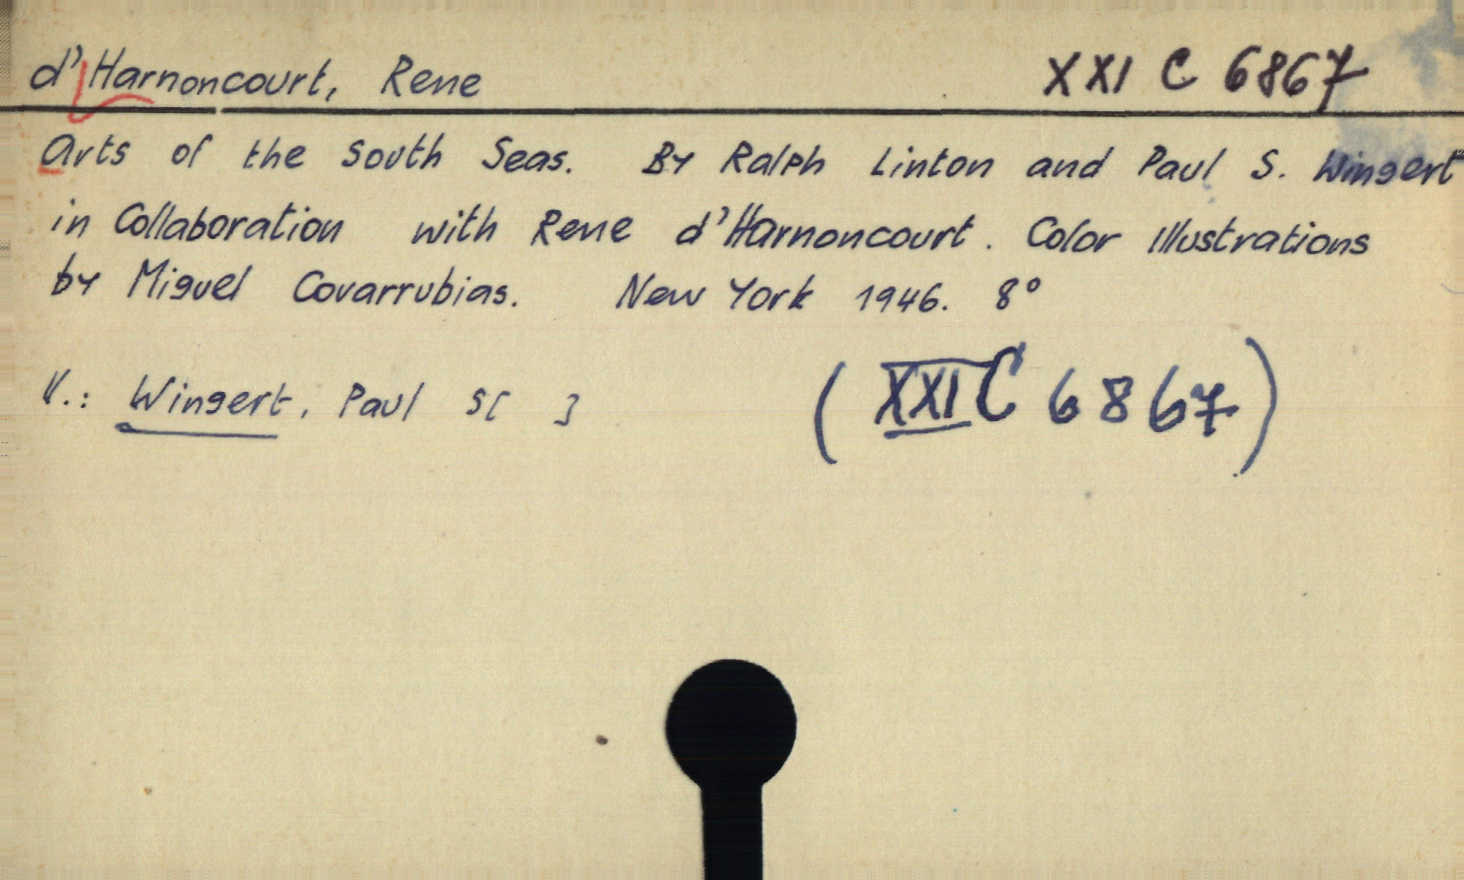 d'Harnoncourt, Rene XXI C 6867
Arts of the South Seas. By Ralph Linton and Paul S. Wingert
in Collaboration with Rene d'Harnoncourt. Color Illustrations
by Miguel Covarrubias. New York 1946. 8°
V.: Wingert, Paul S[ ] (XXI C 6867)